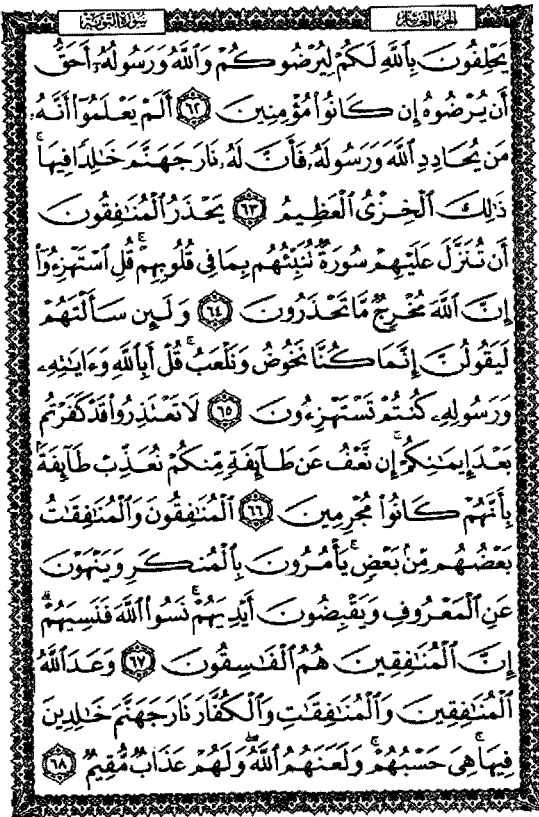 الجزء العاشر
سورة التوبة
يَحْلِفُونَ بِٱللَّهِ لَكُمْ لِيُرْضُوكُمْ وَٱللَّهُ وَرَسُولُهُۥٓ أَحَقُّ
أَن يُرْضُوهُ إِن كَانُوا۟ مُؤْمِنِينَ ٦٢ أَلَمْ يَعْلَمُوٓا۟ أَنَّهُۥ
مَن يُحَادِدِ ٱللَّهَ وَرَسُولَهُۥ فَأَنَّ لَهُۥ نَارَ جَهَنَّمَ خَـٰلِدًا فِيهَا ۚ
ذَٰلِكَ ٱلْخِزْىُ ٱلْعَظِيمُ ٦٣ يَحْذَرُ ٱلْمُنَـٰفِقُونَ
أَن تُنَزَّلَ عَلَيْهِمْ سُورَةٌ تُنَبِّئُهُم بِمَا فِى قُلُوبِهِمْ ۚ قُلِ ٱسْتَهْزِءُوٓا۟
إِنَّ ٱللَّهَ مُخْرِجٌ مَّا تَحْذَرُونَ ٦٤ وَلَئِن سَأَلْتَهُمْ
لَيَقُولُنَّ إِنَّمَا كُنَّا نَخُوضُ وَنَلْعَبُ ۚ قُلْ أَبِٱللَّهِ وَءَايَـٰتِهِۦ
وَرَسُولِهِۦ كُنتُمْ تَسْتَهْزِءُونَ ٦٥ لَا تَعْتَذِرُوا۟ قَدْ كَفَرْتُم
بَعْدَ إِيمَـٰنِكُمْ ۚ إِن نَّعْفُ عَن طَآئِفَةٍ مِّنكُمْ نُعَذِّبْ طَآئِفَةًۢ
بِأَنَّهُمْ كَانُوا۟ مُجْرِمِينَ ٦٦ ٱلْمُنَـٰفِقُونَ وَٱلْمُنَـٰفِقَـٰتُ
بَعْضُهُم مِّنۢ بَعْضٍ ۚ يَأْمُرُونَ بِٱلْمُنكَرِ وَيَنْهَوْنَ
عَنِ ٱلْمَعْرُوفِ وَيَقْبِضُونَ أَيْدِيَهُمْ ۚ نَسُوا۟ ٱللَّهَ فَنَسِيَهُمْ ۗ
إِنَّ ٱلْمُنَـٰفِقِينَ هُمُ ٱلْفَـٰسِقُونَ ٦٧ وَعَدَ ٱللَّهُ
ٱلْمُنَـٰفِقِينَ وَٱلْمُنَـٰفِقَـٰتِ وَٱلْكُفَّارَ نَارَ جَهَنَّمَ خَـٰلِدِينَ
فِيهَا ۚ هِىَ حَسْبُهُمْ ۚ وَلَعَنَهُمُ ٱللَّهُ ۖ وَلَهُمْ عَذَابٌ مُّقِيمٌ ٦٨